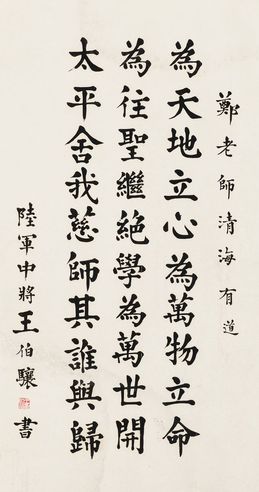 鄭老師清海有道
為天地立心為萬物立命
為往聖繼絕學為萬世開
太平舍我慈師其誰與歸
陸軍中將王伯驤書